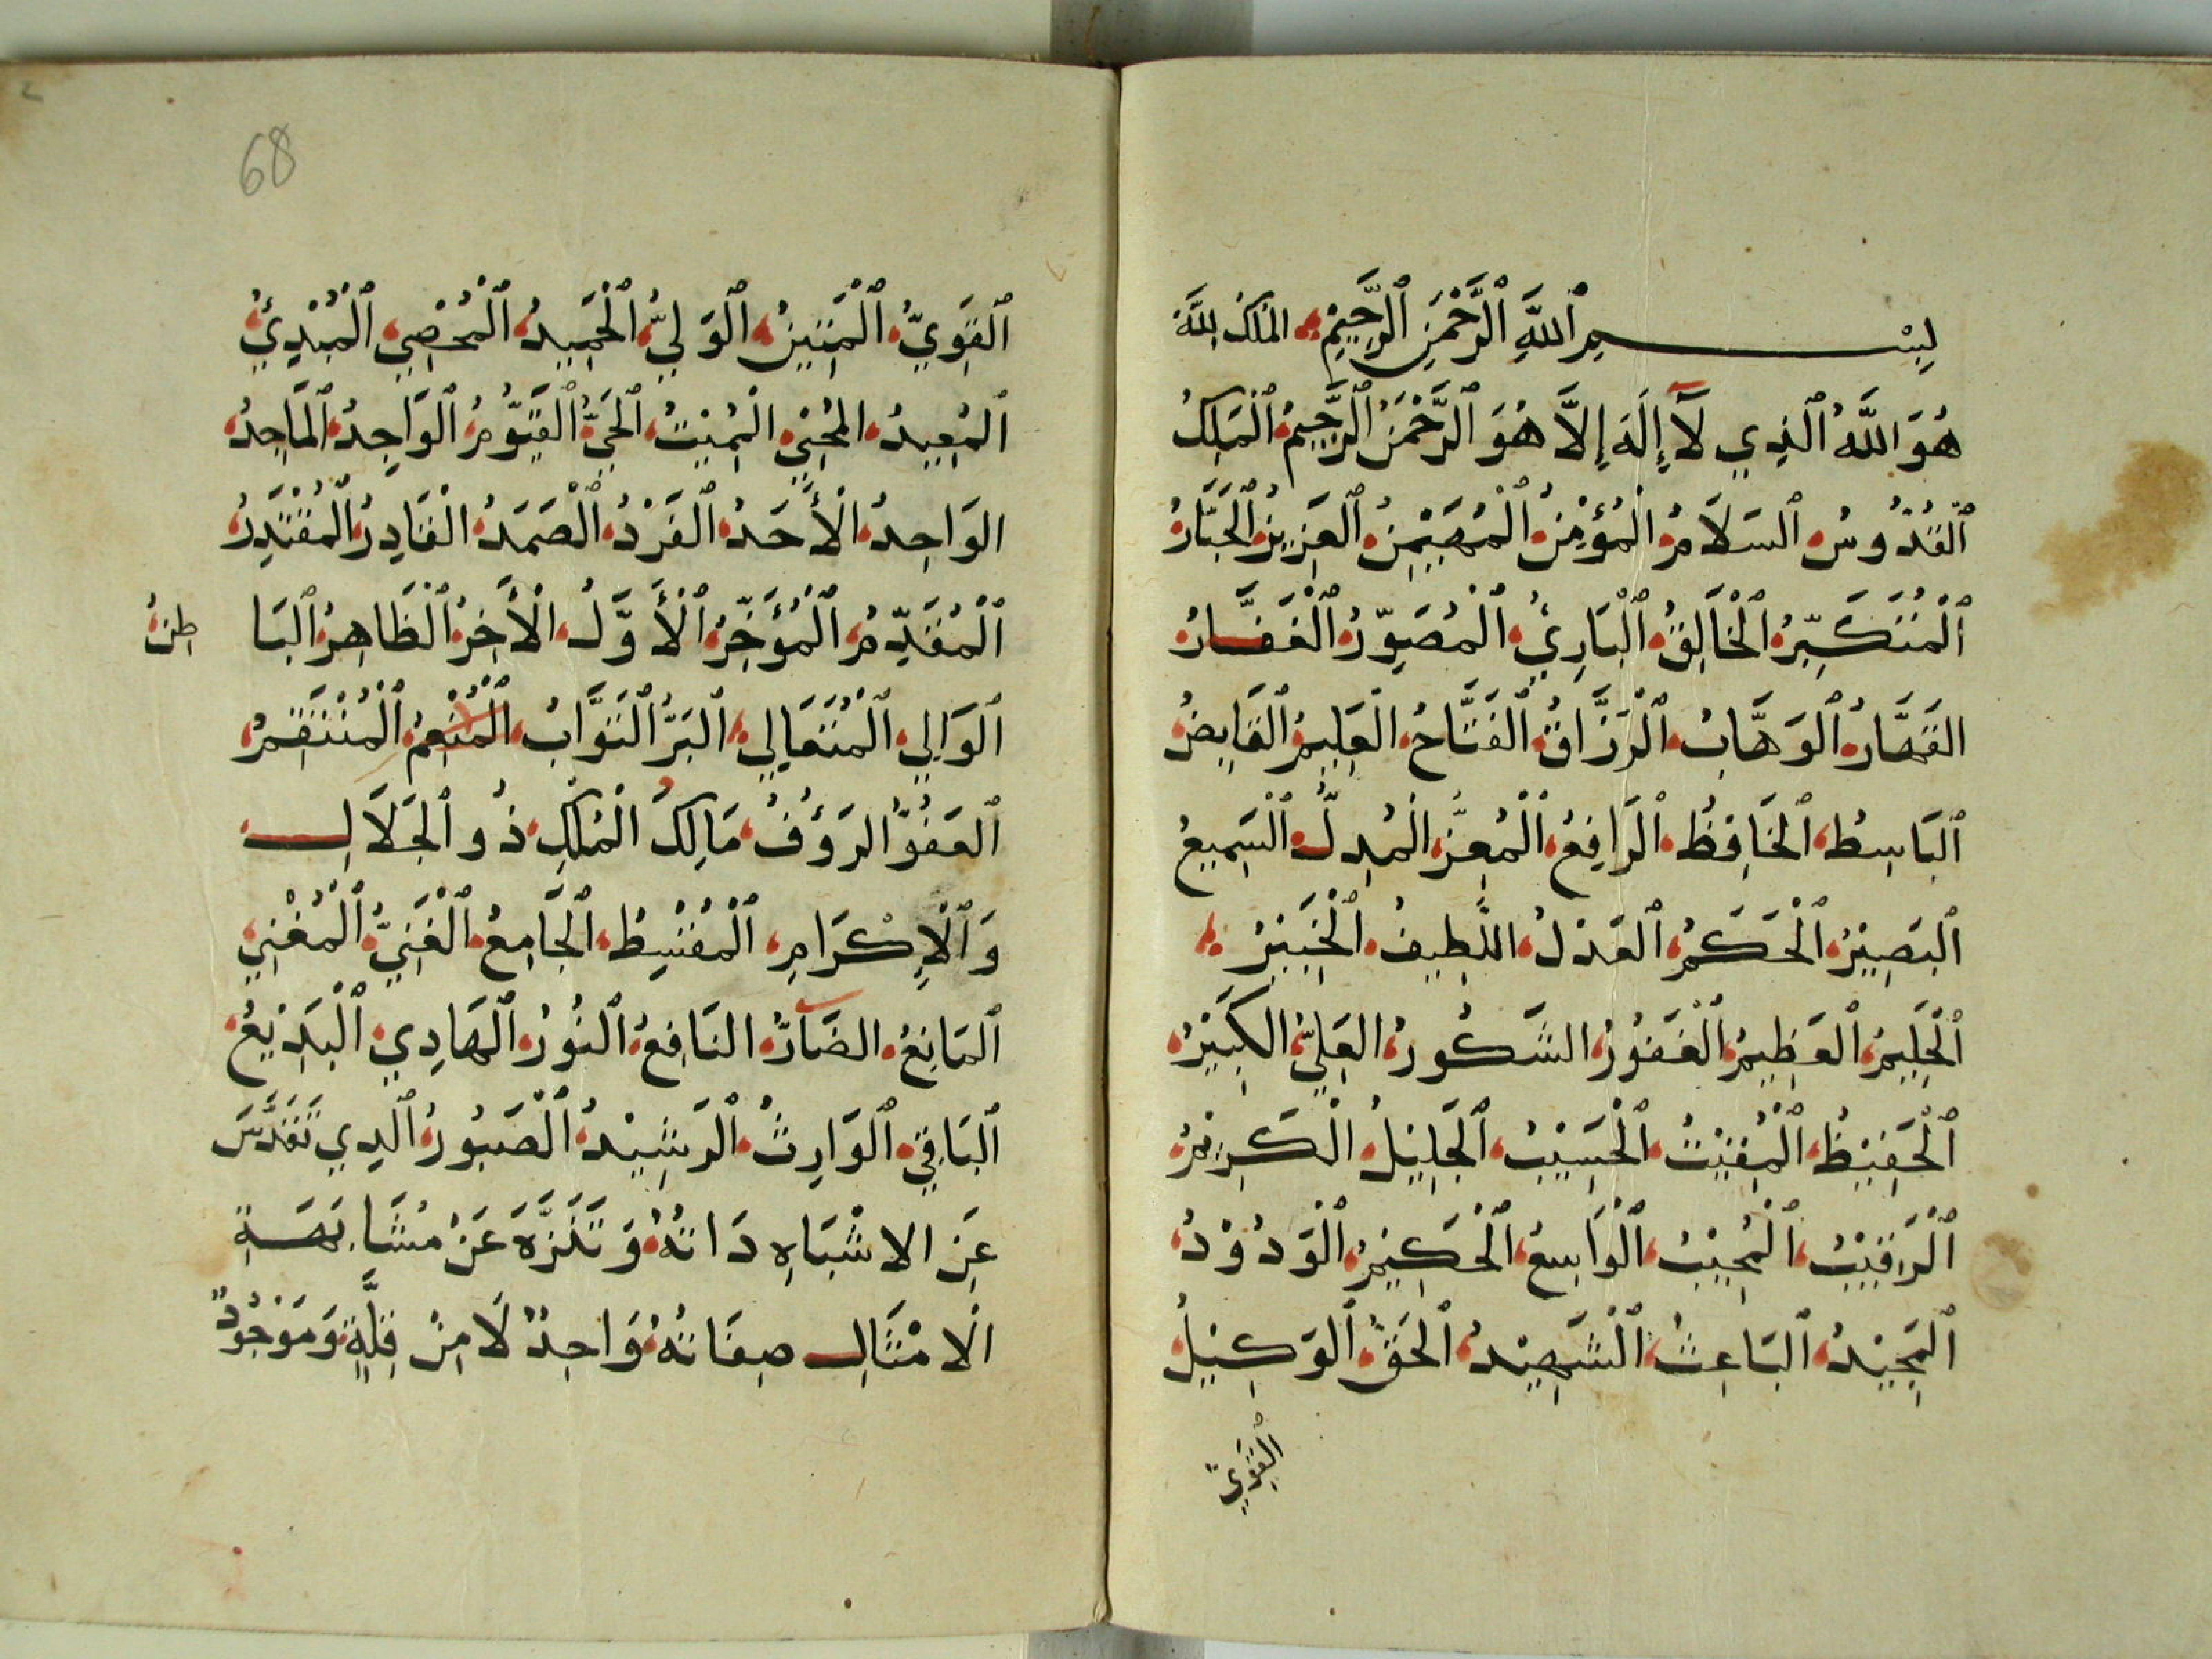 بِسْمِ ٱللَّهِ ٱلرَّحْمَنِ ٱلرَّحِيْمِ الملك لله
هُوَ اللَّهُ ٱلَّذِي لَآ إِلَهَ إِلَّا هُوَ ٱلرَّحْمَنُ ٱلرَّحِيمُ ٱلْمَلِكُ
ٱلْقُدُّوسُ ٱلسَلَامُ الْمُؤْمِنُ ٱلْمُهَيْمِنُ ٱلْعَزِيزُ ٱلْجَبَّارُ
ٱلْمُتَكَبِّرُ ٱلْخَالِقُ ٱلْبَارِئُ ٱلْمُصَوِّرُ ٱلْغَفَّارُ
القَهَّارُ ٱلْوَهَّابُ ٱلْرَزَّاقُ ٱلْفَتَّاحُ الْعَلِيمُ ٱلْقَابِضُ
ٱلْبَاسِطُ ٱلْخَافِظُ ٱلْرَافِعُ ٱلْمُعِزُّ الْمُدِلُّ ٱلْسَمِيعُ
ٱلْبَصِيْرُ ٱلْحَكَمُ ٱلْعَدْلُ اللَّطِيفُ ٱلْخَبِيْرُ
ٱلْحَلِيمُ ٱلْعَظِيمُ ٱلْغَفُورُ الشَكُورُ العَلِيُّ الكَبِيْرُ
ٱلْحَفِيْظُ ٱلْمُقِيْتُ ٱلْحَسِيْبُ ٱلْجَلِيْلُ الْكَرِيْمُ
ٱلْرَقِيْبُ ٱلْمُجِيْبُ ٱلْوَاسِعُ ٱلْحَكِيْمُ ٱلْوَدُوْدُ
ٱلْمَجِيْدُ ٱلْبَاعِثُ ٱلْشَهِيْدُ ٱلْحَقُّ ٱلْوَكِيْلُ
ٱلْقَوِيُّ
68
ٱلْقَوِيُّ ٱلْمَتِيْنُ ٱلْوَلِيُّ ٱلْحَمِيدُ ٱلْمُحْصِي ٱلْمُبْدِئُ
ٱلْمُعِيدُ المُحْيِي الْمُمِيْتُ ٱلْحَيُّ ٱلْقَيُّومُ ٱلْوَاجِدُ ٱلْمَاجِدُ
الوَاحِدُ الْأَحَدُ ٱلْفَرْدُ ٱلْصَمَدُ الْقَادِرُ ٱلْمُقْتَدِرُ
ٱلْمُقَدِّمُ ٱلْمُؤَخِّرُ ٱلْأَوَّلُ الْأَخِرُ ٱلْظَاهِرُ ٱلْبَا طِنُ
ٱلْوَالِي ٱلْمُتَعَالِي ٱلْبَرُّ ٱلْتَوَّابُ ٱلْمُنْعِمُ ٱلْمُنْتَقِمُ
ٱلْعَفُوُّ الرَؤُفُ مَالِكُ الْمُلْكِ ذُو ٱلْجَلَالِ
وَٱلْإِكْرَامِ ٱلْمُقْسِطُ ٱلْجَامِعُ ٱلْغَنِيُّ ٱلْمُغْنِي
ٱلْمَانِعُ الضَآرُّ النَافِعُ ٱلْنُورُ ٱلْهَادِي ٱلْبَدِيْعُ
ٱلْبَاقِي ٱلْوَارِثُ ٱلْرَشِيْدُ ٱلْصَبُورُ ٱلَّدِي تَقَدَّسَ
عَنِ الاشْبَاهِ دَاتُهُ وَتَنَزَّهَ عَنْ مُشَابَهَةِ
الْامْثَالِ صِفَاتُهُ وَاحِدٌ لَا مِنْ قِلَّةٍ وَمَوْجُودٌ